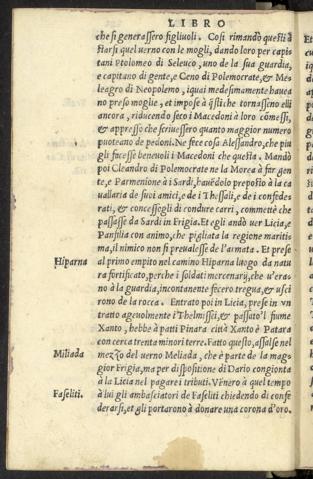 LIBRO
che si generassero figliuoli. Cosi rimandò questi à
starsi quel uerno con le mogli, dando loro per capi-
tani Ptolomeo di Seleuco, uno de la sua guardia,
e capitano di gente, e Ceno di Polemocrate, & Me-
leagro di Neopolemo, iquai medesimamente haueа
no preso moglie, et impose à q̃sti che tornassero elli
ancora, riducendo seco i Macedoni à loro cõmessi,
& appresso che scriuessero quanto maggior numero
puoteano de pedoni. Ne fece cosa Alessandro, che piu
gli facesse beneuoli i Macedoni che questa. Mandò
poi Cleandro di Polemocrate ne la Morea à far gen
te, e Parmenione à i Sardi, hauẽdolo preposto à la ca
uallaria de suoi amici, e de i Thessali, e de i confede-
rati, & concessogli di condurre carri, commettè che
passasse da Sardi in Frigia. Et egli andò uer Licia, e
Panfilia con animo, che pigliata la regione maritis
ma, il nimico non si preualesse de l'armata. Et prese
Hiparna al primo empito nel camino Hiparna luogo da natu
ra fortificato, perche i soldati mercenarij, che u'era-
no à la guardia, incontanente fecero tregua, & usci
rono de la rocca. Entrato poi in Licia, prese in vn
tratto ageuolmente i Thelmissei, & passato'l fiume
Xanto, hebbe à patti Pinara città Xanto è Patara
con cerca trenta minori terre. Fatto questo, assalse nel
Miliada mezzo del uerno Meliada, che è parte de la mag-
gior Frigia, ma per dispositione di Dario congionta
à la Licia nel pagare i tributi. Vẽnero à quel tempo
Faseliti. à lui gli ambasciatori de Faseliti chiedendo di confe
derarsi, et gli portarono à donare una corona d'oro.